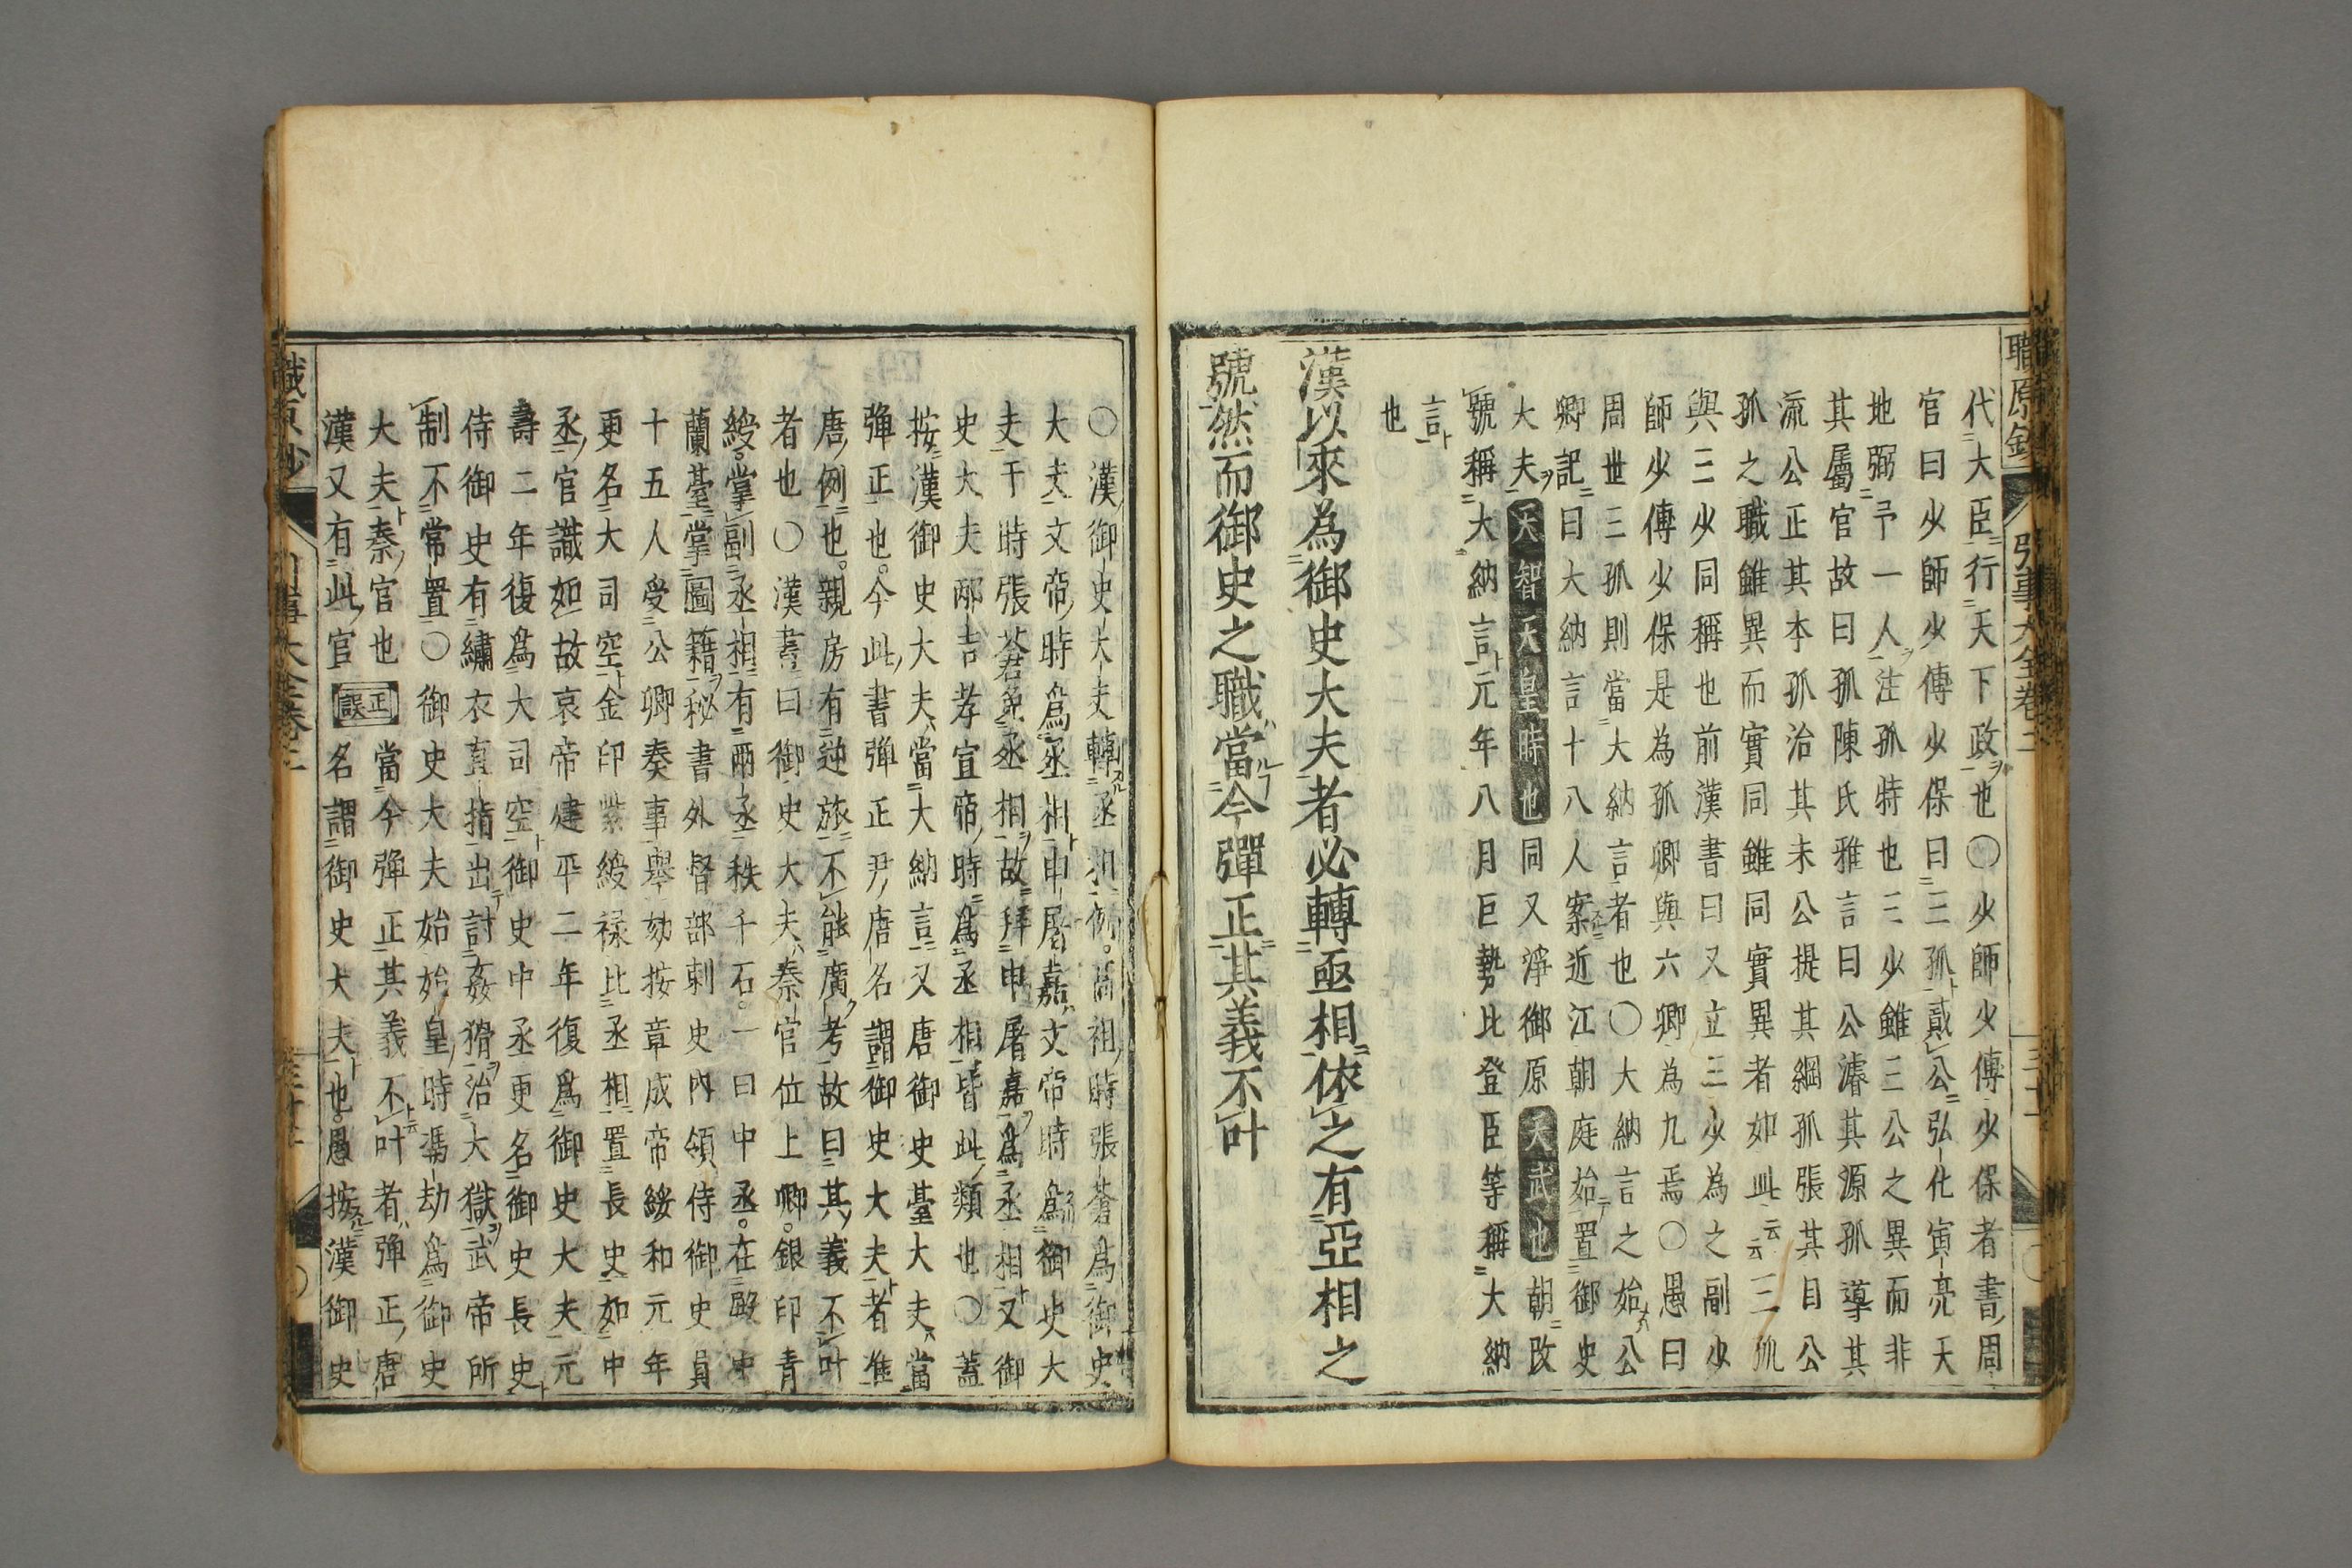 職原鈔 引事大全卷二
代大臣行天下政也〇少師少傅少保者書周
官曰少師少傅少保曰三孤貳公弘化寅亮天
地弼予一人注孤特也三少雖三公之異而非
其屬官故曰孤陳氏雅言曰公濬其源孤導其
流公正其本孤治其末公提其綱孤張其目公
孤之職雖異而實同雖同實異者如此云云三孤
與三少同稱也前漢書曰又立三少為之副少
師少傅少保是為孤卿與六卿為九焉〇愚曰
周世三孤則當大納言者也〇大納言之始公
卿記曰大納言十八人案近江朝庭始置御史
大夫天智天皇時也同又淨御原天武也朝改
號稱大納言元年八月巨勢比登臣等稱大納
言
也
漢以來為御史大夫者必轉亟相依之有亞相之
號然而御史之職當今彈正其義不叶
〇漢御史大夫轉丞相例高祖時張蒼為御史
大夫文帝時爲丞相申屠嘉文帝時爲御史大
夫于時張蒼免丞相故拜申屠嘉爲丞相又御
史大夫邴吉孝宣帝時爲丞相皆此類也〇蓋
按漢御史大夫當大納言又唐御史臺大夫當
彈正也今此書彈正尹唐名謂御史大夫者准
唐例也親房有逆旅不能廣考故曰其義不叶
者也〇漢書曰御史大夫秦官位上卿銀印青
綬掌副丞相有兩丞秩千石一曰中丞在殿中
蘭臺掌圖籍秘書外督部刺史內領侍御史員
十五人受公卿奏事舉劾按章成帝綏和元年
更名大司空金印紫綬祿比丞相置長史如中
丞官識如故哀帝建平二年復爲御史大夫元
壽二年復爲大司空御史中丞更名御史長史
侍御史有繡衣直指出討姦猾治大獄武帝所
制不常置〇御史大夫始始皇時馮劫爲御史
大夫秦官也正誤當今彈正其義不叶者彈正唐
漢又有此官名謂御史大夫也愚按漢御史
職原鈔